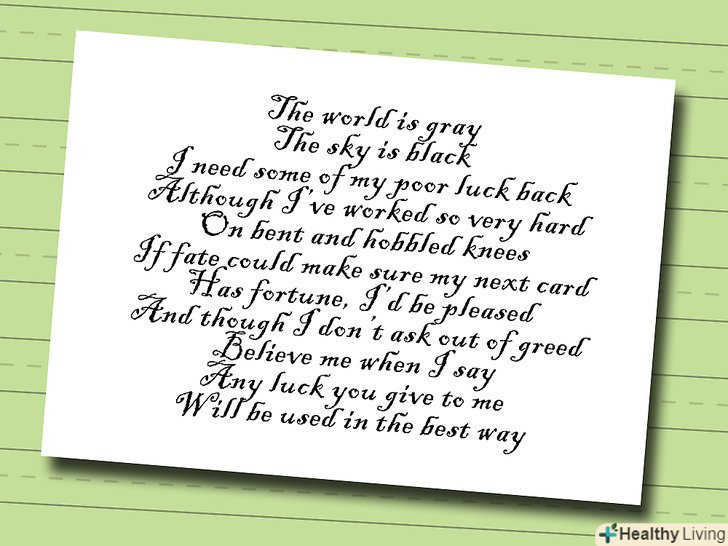 The world is gray
The sky is black
I need some of my poor luck back
Although I've worked so very hard
On bent and hobbled knees
If fate could make sure my next card
Has fortune, I'd be pleased
And though I don't ask out of greed
Believe me when I say
Any luck you give to me
Will be used in the best way
Healthy Living